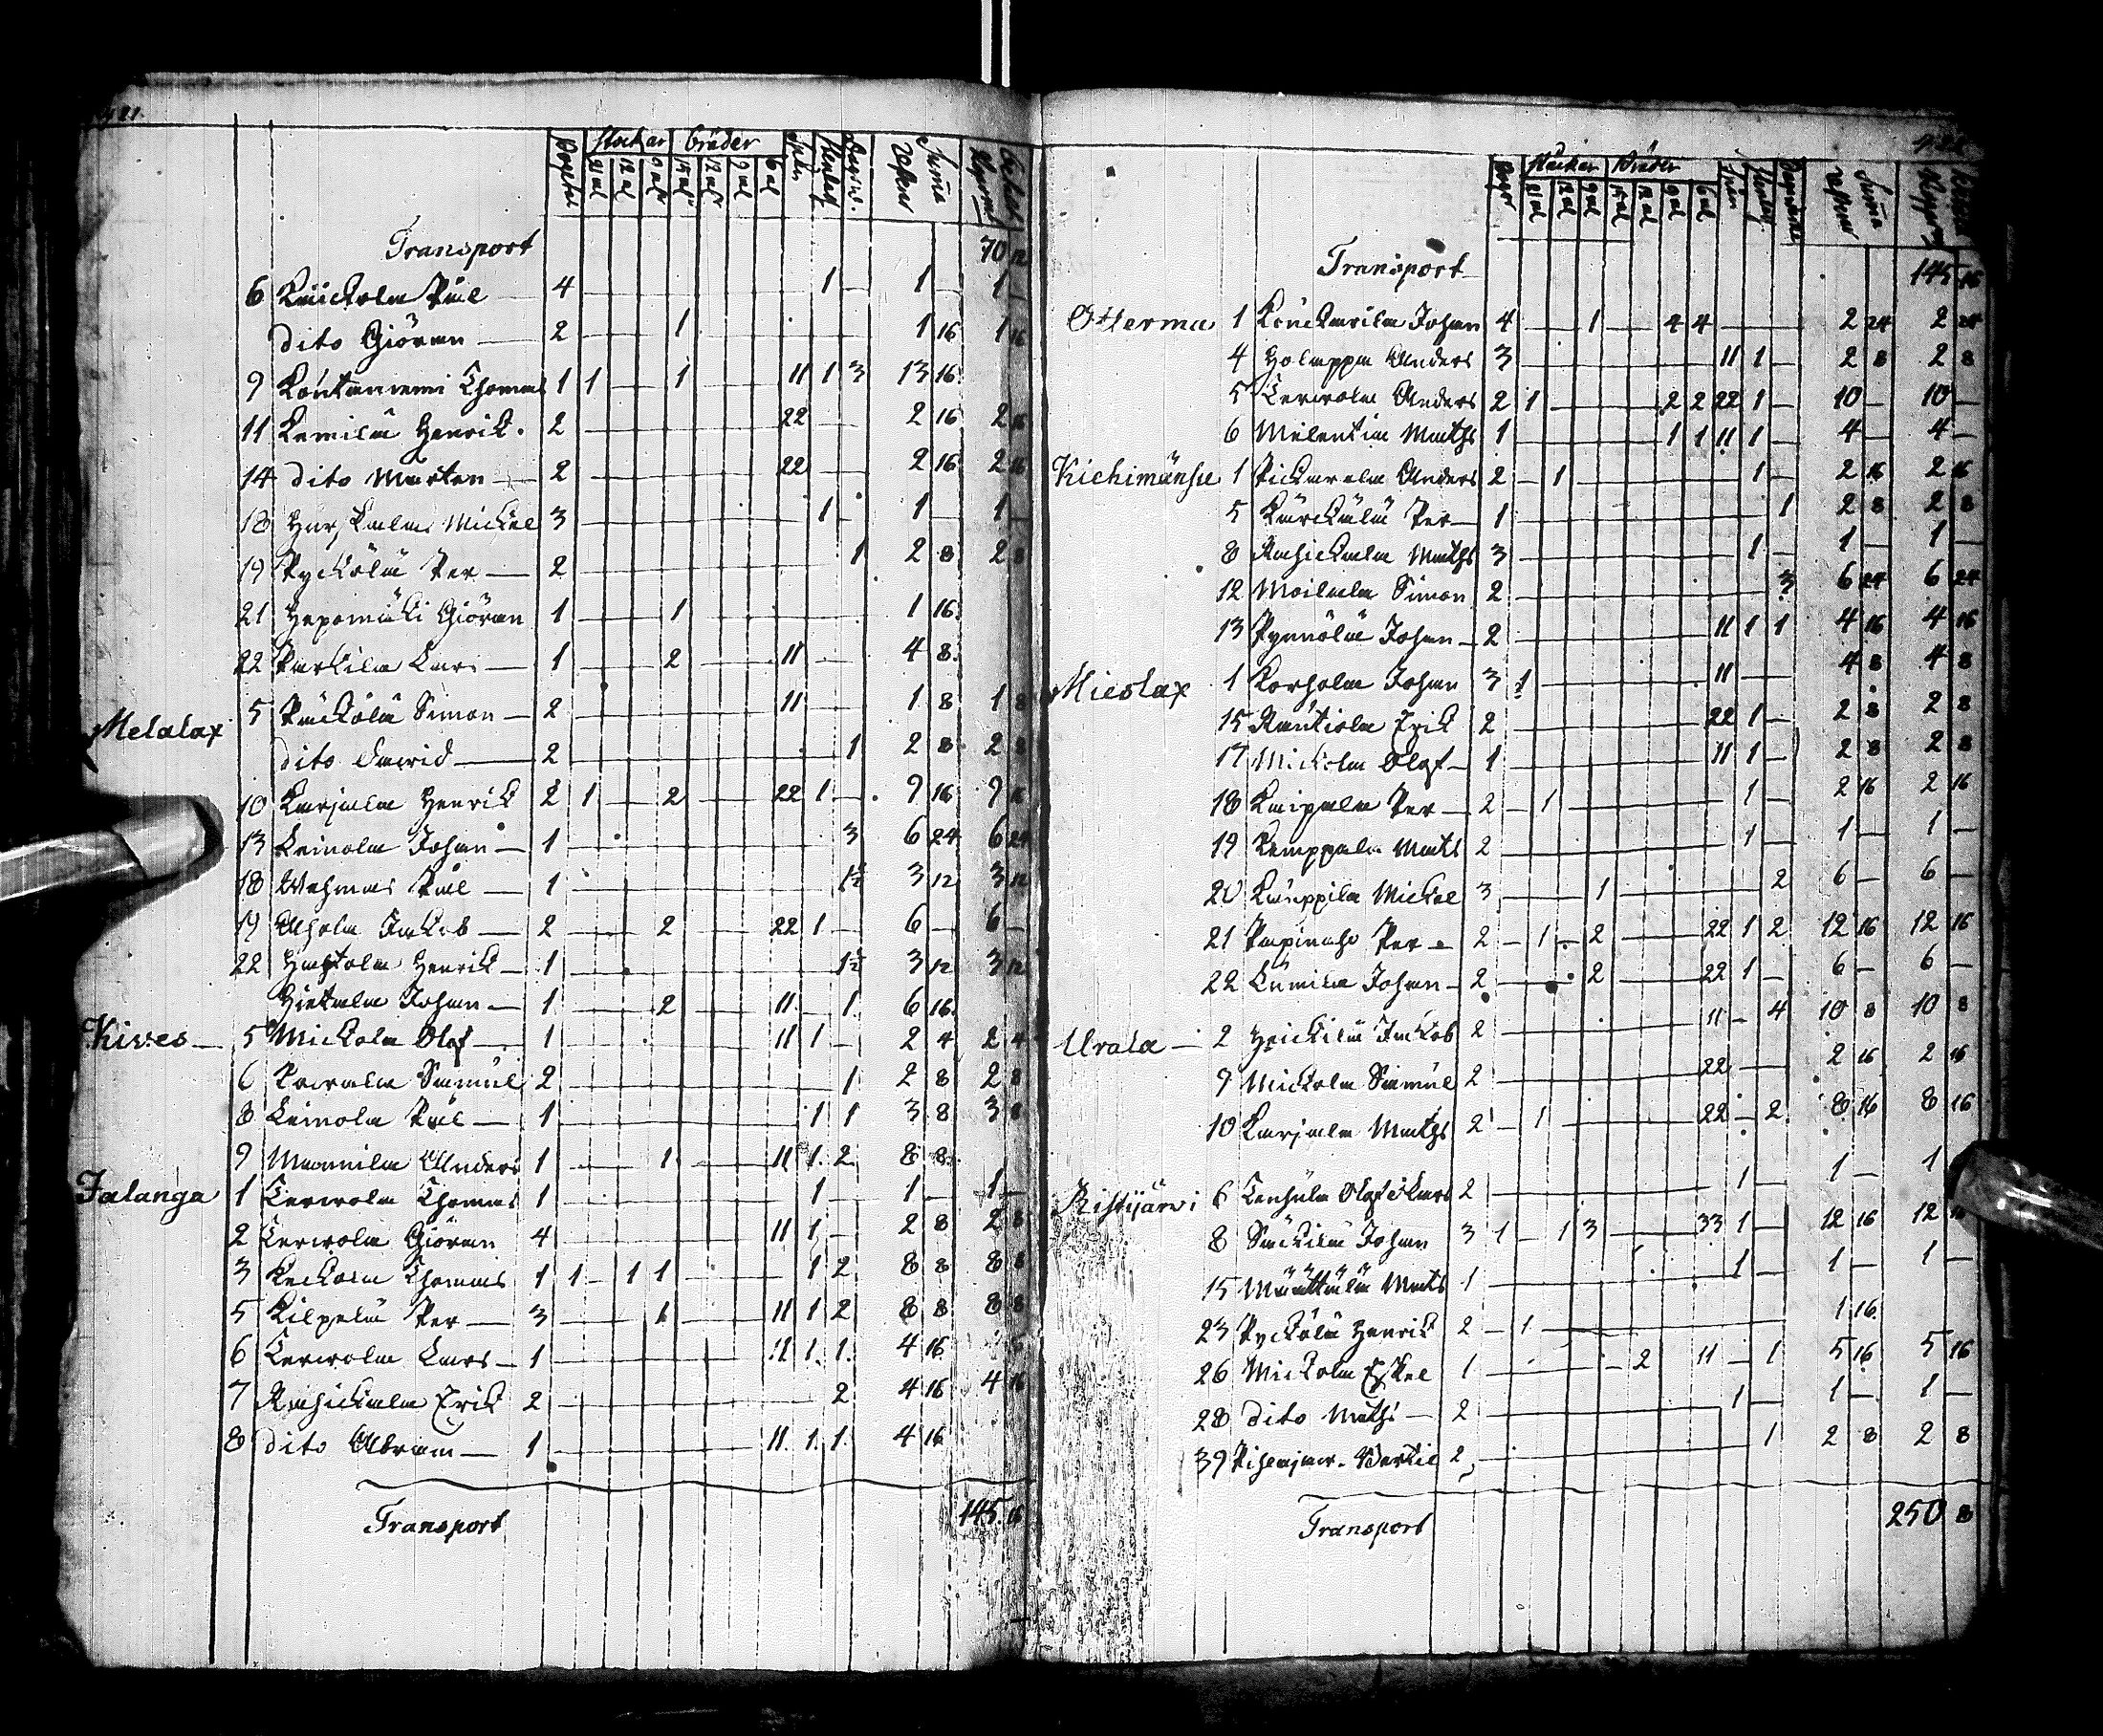 Stockar Bräder
Transport 70 12
6 Kuickola Påul 4 1 1 1
dito Giöran 2 1 1 16 1 16
9 Kontaniemi Thomas 1 1 1 11 1 3 13 16
11 Kemilä Henrik 2 22 2 16 2 16
14 dito Mårten 2 22 2 16 2 16
18 Mickel 3 1 1 1
19 Pyckölä Per 2 1 2 8 2 8
21 Hepomäki Giöran 1 1 1 16
22 Parkila Lars 1 2 11 4 8
Melalax 5 Päckölä Simon 2 11 1 8 1 8
dito David 2 1 2 8 2 8
10 Karjala Henrik 2 1 2 22 1 9 16 9 16
13 Leinola Johan 1 3 6 24 6 24
18 Påul 1 1½ 3 12 3 12
19 Ahola Jakob 2 2 22 1 6 6
22 Henrik 1 1½ 3 12 3 12
Hietala Johan 1 2 11 1 6 16
Kives 5 Mickola Olof 1 11 1 2 4 2 4
6 Samuel 2 1 2 8 2 8
8 Leinola Påul 1 1 1 3 8 3 8
9 Mannila Anders 1 1 11 1 2 8 8
Jalanga 1 Terwola Thomas 1 1 1 1
2 Terwola Giöran 4 11 1 2 8 2 8
3 Keckola Thomas 1 1 1 1 1 2 8 8 8 8
5 Kilpelä Per 3 1 11 1 2 8 8 8 8
6 Terwola Lars 1 11 1 1 4 16
7 Rasickala Erik 2 2 4 16 4 16
8 dito Abram 1 11 1 1 4 16
Transport 145 16
Stockar Bräder
Transport 145 16
Otterma 1 Johan 4 1 4 4 2 24 2 24
4 Holappa Anders 3 11 1 2 8 2 8
5 Terwola Anders 2 1 2 2 22 1 10 10
6 Matts 1 1 1 11 1 4 4
Kiehimänsu 1 Pickarala Anders 2 1 1 2 16 2 16
5 Kärckälä Per 1 1 2 8 2 8
8 Rasickala Matts 3 1 1 1
12 Moilala Simon 2 3 6 24 6 24
13 Pynnölä Johan 2 11 1 1 4 16 4 16
Mieslax 1 Korhola Johan 3 1 11 4 8 4 8
15 Rautiola Erik 2 22 1 2 8 2 8
17 Mickola Olof 1 11 1 2 8 2 8
18 Kaipala Per 2 1 1 2 16 2 16
19 Kemppala Matts 2 1 1 1
20 Kauppila Mickel 3 1 2 6 6
21 Papinaho Per 2 1 2 22 1 2 12 16 12 16
22 Johan 2 2 22 1 6 6
Urala 2 Heickilä Jakob 2 11 4 10 8 10 8
9 Mickola Samuel 2 22 2 16 2 16
10 Karjala Matts 2 1 22 2 8 16 8 16
Ristijärwi 6 Olof 2 1 1 1
8 Säckilä Johan 3 1 1 3 33 1 12 16 12
15 Määttälä Matts 1 1 1 1
23 Pyckölä Henrik 2 1 1 16
26 Mickola Eskel 1 2 11 1 5 16 5 16
28 dito Matts 2 1 1 1
39 Bertil 2 1 2 8 2 8
Transport 250 8